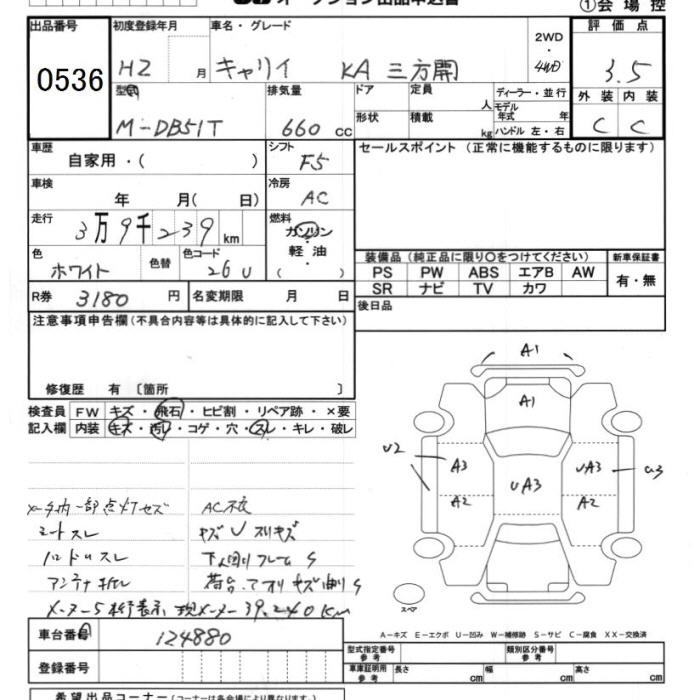 オークション出品申込書
①会場控
出品番号 0536
初度登録年月 H2 月
車名・グレード キャリイ KA 三方開
2WD・4WD
評価点 3.5
外装 内装
C C
型式 M-DB51T
排気量 660 cc
ドア 形状
定員 人
積載 kg
ディーラー・並行
モデル年式 年
ハンドル 左・右
車歴 自家用・( )
シフト F5
セールスポイント(正常に機能するものに限ります)
車検 年 月( 日)
冷房 AC
走行 3万9千239 km
燃料 ガソリン・軽油 ( )
色 ホワイト
色替
色コード 26U
装備品(純正品に限り○をつけてください)
新車保証書
PS PW ABS エアB AW
有・無
SR ナビ TV カワ
R券 3180 円
名変期限 月 日
後日品
注意事項申告欄(不具合内容等は具体的に記入して下さい)
修復歴 有 〔箇所 〕
検査員記入欄
FW キズ・飛石・ヒビ割・リペア跡・×要
内装 キズ・汚レ・コゲ・穴・スレ・キレ・破レ
A1
A1
U2
A3
UA3
UA3
U3
A2
A2
メータ内一部点灯セズ AC不良
シートスレ キズ U スリキズ
ハンドルスレ 下廻りフレーム S
アンテナ折レ 荷台サアオリ キズ曲り S
メーター5桁表示 現メーター39.240Km
スペア
A-キズ E-エクボ U-凹み W-補修跡 S-サビ C-腐食 XX-交換済
車台番号 124880
型式指定番号 参考
類別区分番号 参考
登録番号
車庫証明用 参考
長さ cm 幅 cm 高さ cm
希望出品コーナー(コーナーは各会場により異なります)